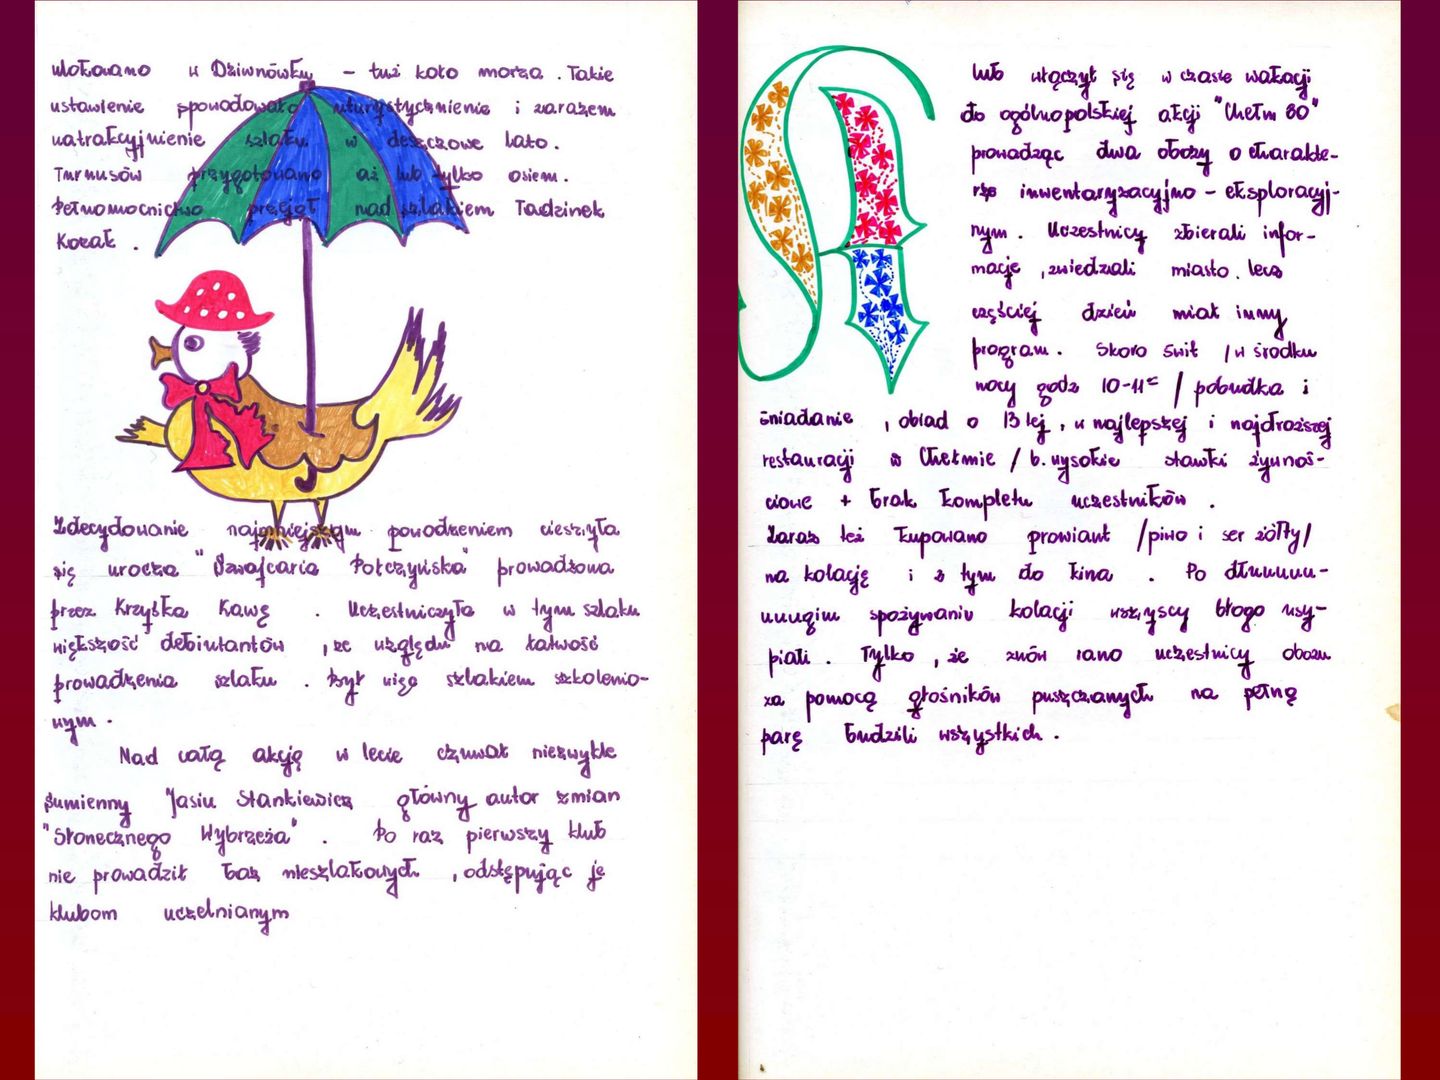 ulokowano w Dziwnówku - tuż koło morza . Takie
ustawienie spowodowało uturystycznienie i zarazem
uatrakcyjnienie szlaku w deszczowe lato .
Turnusów przygotowano aż lub tylko osiem .
Pełnomocnictwo przejął nad szlakiem Tadzinek
Kozak .
Zdecydowanie najmniejszym powodzeniem cieszyła
się urocza "Szwajcaria Połczyńska" prowadzona
przez Krzyśka Kawę . Uczestniczyła w tym szlaku
większość debiutantów , ze względu na łatwość
prowadzenia szlaku . Był więc szlakiem szkolenio-
wym .
Nad całą akcją w lecie czuwał niezwykle
sumienny Jasiu Stankiewicz główny autor zmian
"Słonecznego Wybrzeża" . Po raz pierwszy klub
nie prowadził baz nieszlakowych , odstępując je
klubom uczelnianym
K
lub włączył się w czasie wakacji
do ogólnopolskiej akcji "Chełm 80"
prowadząc dwa obozy o charakte-
rze inwentaryzacyjno - eksploracyj-
nym . Uczestnicy zbierali infor-
macje , zwiedzali miasto . lecz
częściej dzień miał inny
program . Skoro świt / w środku
nocy godz 10-11 / pobudka i
śniadanie , obiad o 13 tej , w najlepszej i najdroższej
restauracji w Chełmie / b. wysokie stawki żywnoś-
ciowe + brak kompletu uczestników .
Zaraz też kupowano prowiant /piwo i ser żółty/
na kolację i z tym do kina . Po dłuuuuu-
uuugim spożywaniu kolacji wszyscy błogo usy-
piali . Tylko , że znów rano uczestnicy obozu
za pomocą głośników puszczanych na pełną
parę budzili wszystkich .